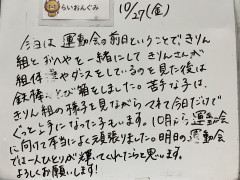 らいおんぐみ
10/27(金)
今日は運動会の前日ということできりん
組とかいやを一緒にして きりんさんが
組体操やダンスをしているのを見た後は
鉄棒、とび箱をしました。苦手な子は、
きりん組の様子を見ながら 今日だけで
ぐっと上手になった子もいます。10月から運動会
に向けて本当によく頑張りました。明日の運動会
では一人ひとりが輝いてくれたらと思います。
よろしくお願いします!